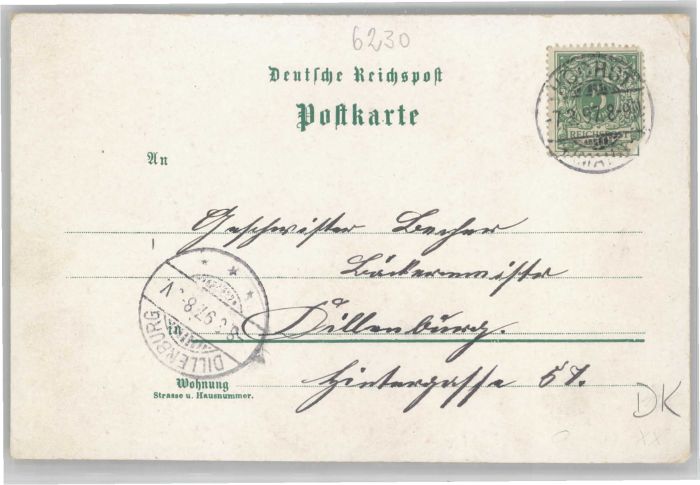 6230
Deutsche Reichspost
Postkarte
REICHSPOST
7.3.97. 8-9N
An
Geschwister Becher
Bäckermeister
DILLENBURG
in Dillenburg.
Wohnung
Strasse u. Hausnummer.
Hintergasse 57.
DK